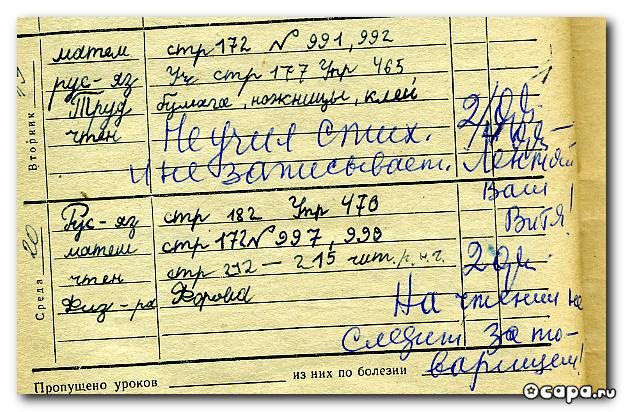 Вторник
матем стр 172 № 991, 992
рус-яз Уч стр 177 Упр 465
Труд бумага, ножницы, клей
чтен Не учил стих. 2/два
И не записывает. Лентяй
Ваш
Витя!
Среда 20
Рус-яз стр 182 Упр 478
матем стр 172 № 997, 998
чтен стр 212 – 215 чит. 2 два
Физ-ра Форма
На чтении не
следит за то-
варищем!
Пропущено уроков из них по болезни
oсара.ru